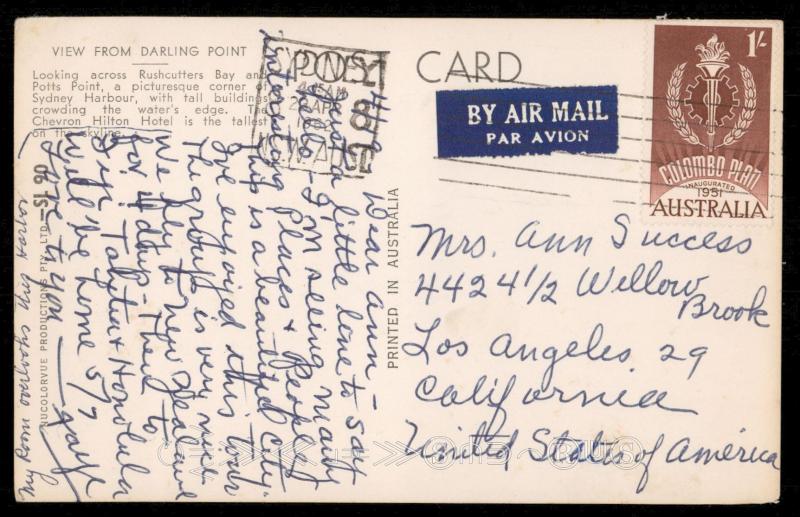 VIEW FROM DARLING POINT
Looking across Rushcutters Bay and
Potts Point, a picturesque corner of
Sydney Harbour, with tall buildings
crowding the water's edge. The
Chevron Hilton Hotel is the tallest
on the skyline.
Dear Ann -
Just a little line to say
I'm seeing many
interesting places & people,
This is a beautiful city.
I've enjoyed this tour
The group is very nice
We fly to New Zealand
for 4 days - then to
Fiji Tahiti & Honolulu
Will be home 5/7
Love to you
NUCOLORVUE PRODUCTIONS PTY. LTD. — SL 90
PRINTED IN AUSTRALIA
CARD
SYDNEY
BY AIR MAIL
PAR AVION
1/-
COLOMBO PLAN
INAUGURATED
1951
AUSTRALIA
Mrs. Ann Success
4424 1/2 Willow
Brook
Los Angeles 29
California
United States of America